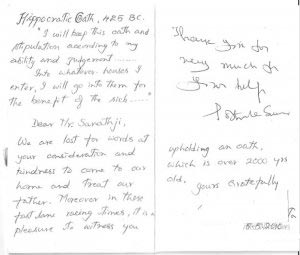 Hippocratic Oath, 425 BC.
"I will keep this oath and
stipulation according to my
ability and judgement ........
..... Into whatever houses I
enter, I will go into them for
the benefit of the sick ...."
Dear Mr Sarathji,
We are lost for words at
your consideration and
kindness to come to our
home and treat our
father. Moreover in these
fast lane racing times, it is a
pleasure to witness you
Thank you for
very much for
your help
upholding an oath
which is over 2000 yrs
old.
yours gratefully